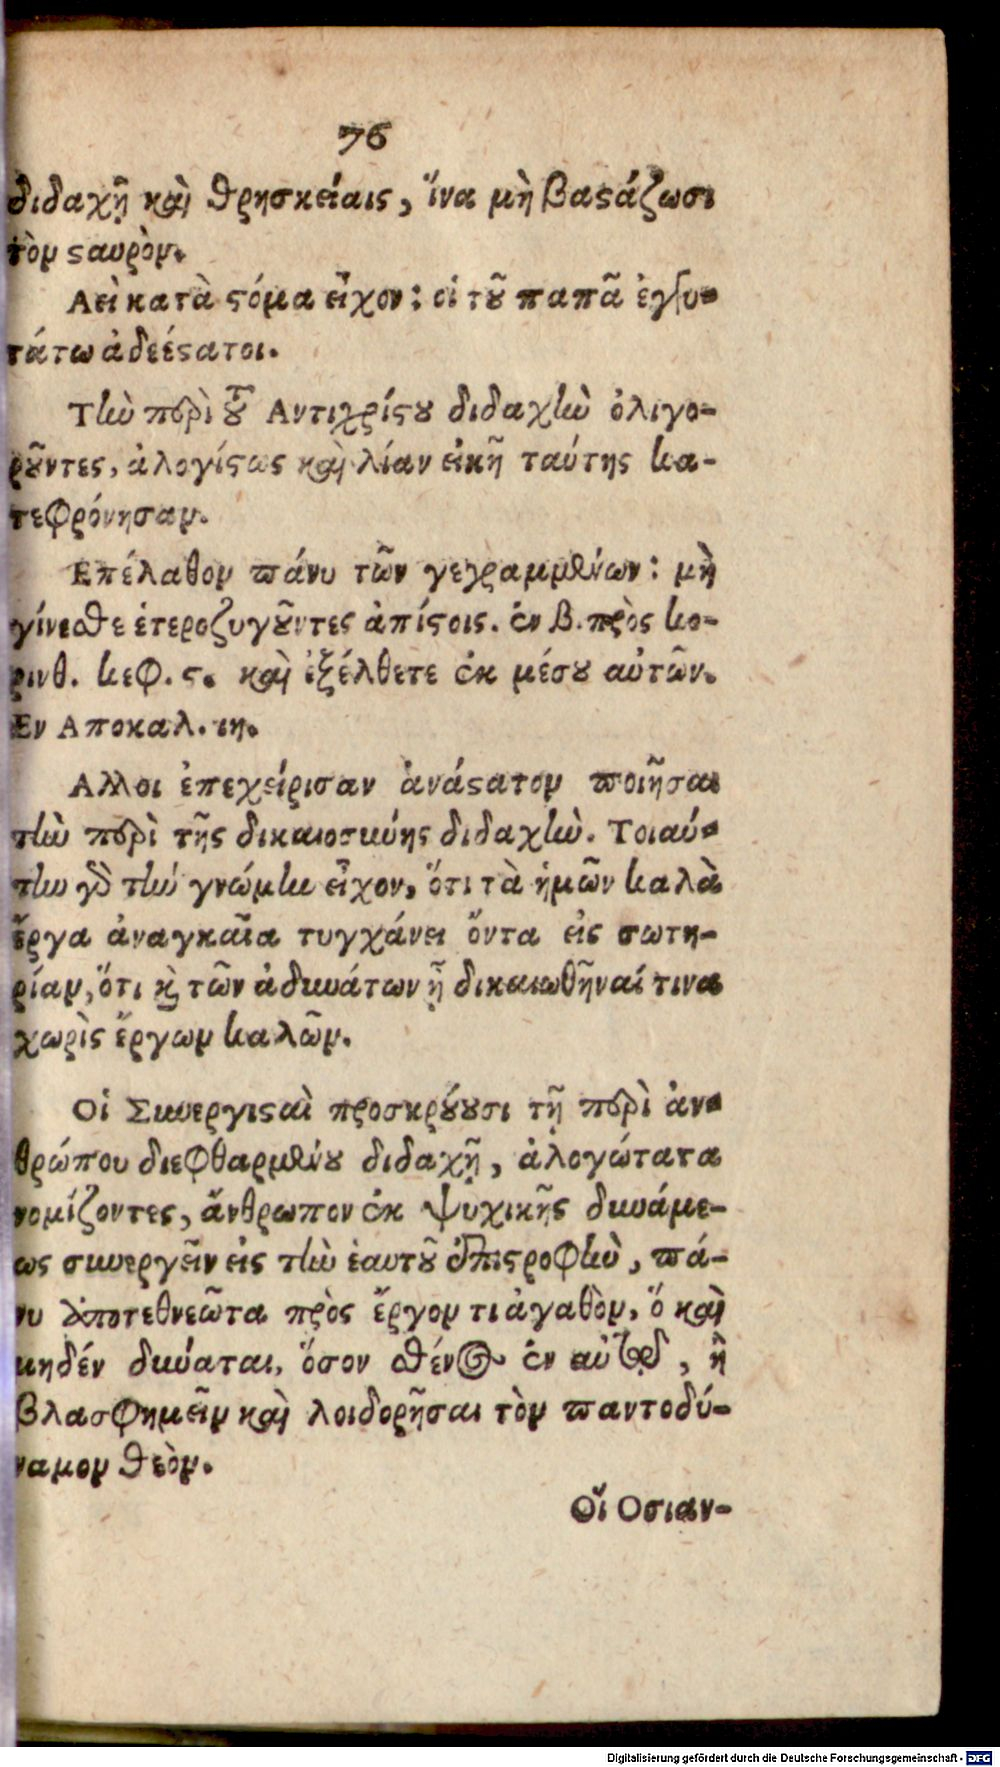 76
διδαχῇ καὶ θρησκείαις, ἵνα μὴ βαϛάζωσι
τὸν ϛαυρὸν.
Αεὶ κατὰ ϛόμα εἶχον: οἱ τοῦ παπᾶ ἐγγυ-
τάτω ἀδεέϛατοι.
Τὴν περὶ τοῦ Αντιχρίϛου διδαχὴν ὀλιγο-
ροῦντες, ἀλογίϛως καὶ λίαν εἰκῆ ταύτης κα-
τεφρόνησαν.
Επέλαθον πάνυ τῶν γεγραμμένων: μὴ
γίνεσθε ἑτεροζυγοῦντες ἀπίϛοις. ἐν β. πρὸς κο-
ρινθ. κεφ. ϛ. καὶ ἐξέλθετε ἐκ μέσου αὐτῶν.
Εν Αποκαλ. ιη.
Αλλοι ἐπεχείρισαν ἀνάϛατον ποιῆσαι
τὴν περὶ τῆς δικαιοσύνης διδαχὴν. Τοιαύ-
την γὰρ τὴν γνώμην εἶχον, ὅτι τὰ ἡμῶν καλὰ
ἔργα ἀναγκαῖα τυγχάνει ὄντα εἰς σωτη-
ρίαν, ὅτι καὶ τῶν ἀδυνάτων ᾖ δικαιωθῆναί τινα
χωρὶς ἔργων καλῶν.
Οἱ Συνεργιϛαὶ προσκρούουσι τῇ περὶ ἀν-
θρώπου διεφθαρμένου διδαχῇ, ἀλογώτατα
νομίζοντες, ἄνθρωπον ἐκ ψυχικῆς δυνάμε-
ως συνεργεῖν εἰς τὴν ἑαυτοῦ ἐπιϛροφὴν, πά-
νυ ἀποτεθνεῶτα πρὸς ἔργον τι ἀγαθὸν, ὃ καὶ
μηδέν δύναται, ὅσον σθένος ἐν αὐτῷ, ἢ
βλασφημεῖν καὶ λοιδορῆσαι τὸν παντοδύ-
ναμον θεὸν.
Οἵ Οσιαν-
Digitalisierung gefördert durch die Deutsche Forschungsgemeinschaft - DFG